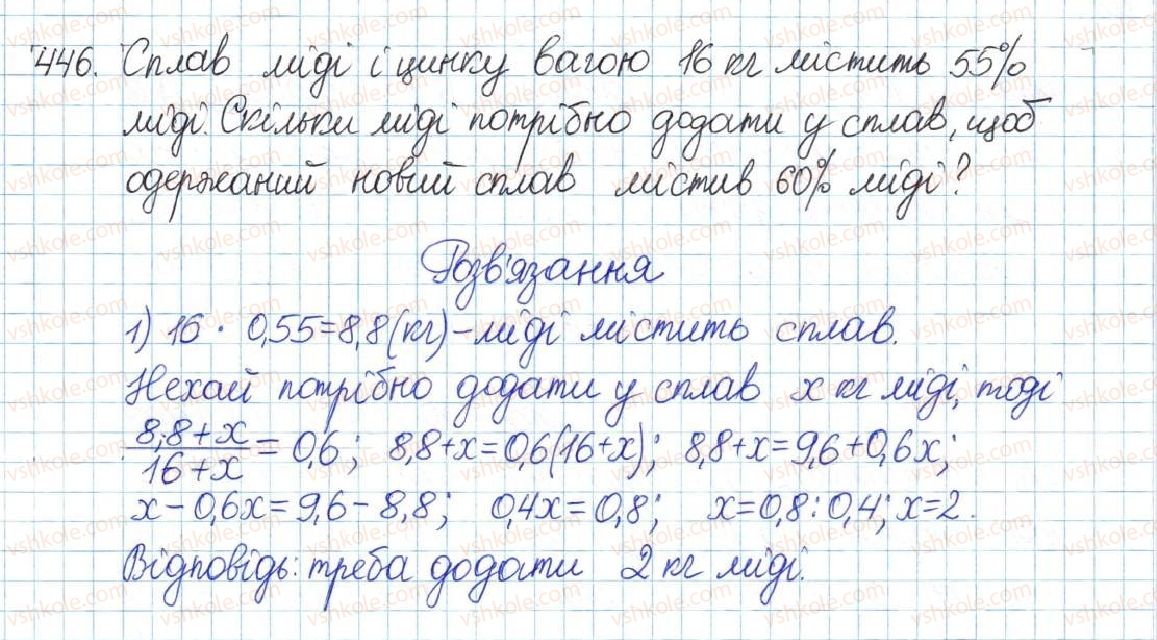 446. Сплав міді і цинку вагою 16 кг містить 55%
міді. Скільки міді потрібно додати у сплав, щоб
одержаний новий сплав містив 60% міді?
Розв'язання
1) 16 · 0,55=8,8(кг)-міді містить сплав.
Нехай потрібно додати у сплав x кг міді, тоді
(8,8+x)/(16+x) = 0,6; 8,8+x=0,6(16+x); 8,8+x=9,6+0,6x;
x-0,6x=9,6-8,8; 0,4x=0,8; x=0,8:0,4; x=2.
Відповідь: треба додати 2 кг міді.